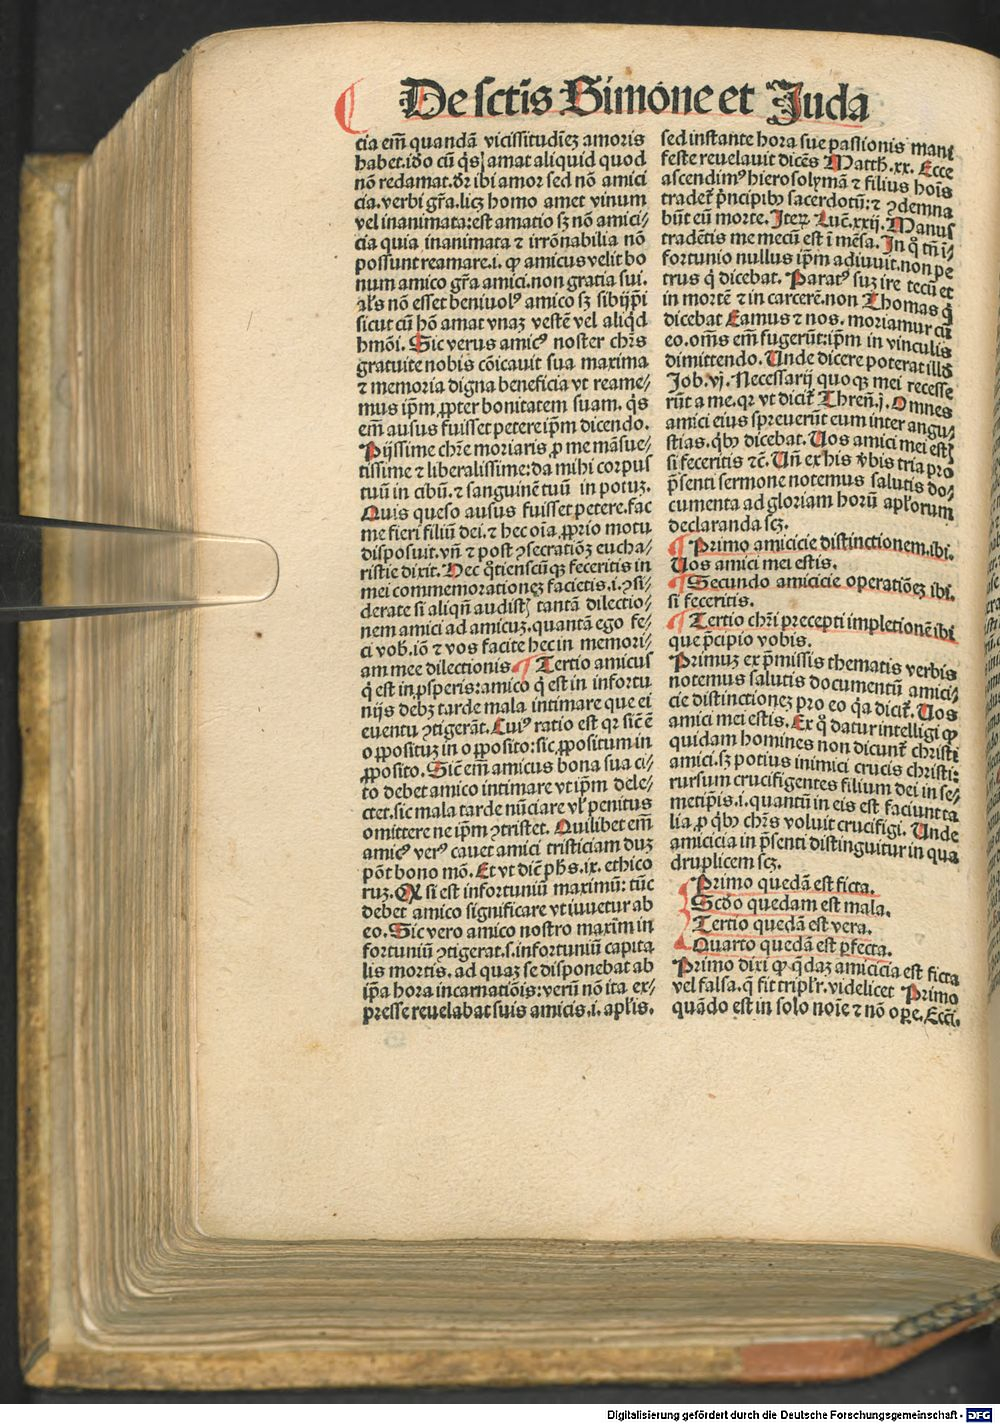 De sctis Simone et Juda
cia em̄ quandā vicissitudīez amoris
habet. iđo cū q̄s amat aliquid quod
nō redamat. d̄r ibi amor sed nō amici
cia. verbi gr̄a. licꝫ homo amet vinum
vel inanimata: est amatio sꝫ nō amici⸗
cia quia inanimata ⁊ irrōnabilia nō
possunt reamare. i. ꝙ amicus velit bo
num amico gr̄a amici. non gratia sui.
al̄s nō esset beniuolꝰ amico sꝫ sibijp̄i
sicut cū hō amat vnaꝫ vestē vel aliq̄d
hmōi. Sic verus amicꝰ noster chr̄s
gratuite nobis cōicauit sua maxima
⁊ memoria digna beneficia vt reame⸗
mus ip̄m ꝓpter bonitatem suam. q̄s
em̄ ausus fuisset petere ip̄m dicendo.
Pijssime chr̄e moriaris ꝓ me māsue⸗
tissime ⁊ liberalissime: da mihi corpus
tuū in cibū. ⁊ sanguinē tuū in potuꝫ.
Quis queso ausus fuisset petere. fac
me fieri filiū dei. ⁊ hec oīa ꝓprio motu
disposuit. vn̄ ⁊ post ꝯsecratiōꝫ eucha⸗
ristie dixit. Hec q̄tienscūqꝫ feceritis in
mei commemorationeꝫ facietis. i. ꝯsi⸗
derate si aliqn̄ audistꝭ tantā dilectio⸗
nem amici ad amicuꝫ. quantā ego fe⸗
ci vob. iō ⁊ vos facite hec in memori⸗
am mee dilectionis. ¶ Tertio amicus
q̄ est in ꝓsperis: amico q̄ est in infortu
nijs debꝫ tarde mala intimare que ei
euentu ꝯtigerāt. Cuiꝰ ratio est qꝛ sic̄ ē
oppositūꝫ in opposito: sic ꝓpositum in
ꝓposito. Sic̄ em̄ amicus bona sua ci⸗
to debet amico intimare vt ip̄m dele⸗
ctet. sic mala tarde nūciare vl̄ penitus
omittere ne ip̄m ꝯtristet. Quilibet em̄
amicꝰ verꝰ cauet amici tristiciam duꝫ
pōt bono mō. Et vt dic̄ ph̄s. ix. ethico
ruꝫ. Qꝛ si est infortuniū maximū: tūc
debet amico significare vt iuuetur ab
eo. Sic vero amico nostro maxim̄ in
fortuniū ꝯtigerat. s. infortuniū capita
lis mortis. ad quaꝫ se disponebat ab
ip̄a hora incarnatiōis: verū nō ita ex⸗
presse reuelabat suis amicis. i. apl̄is.
sed instante hora sue passionis mani
feste reuelauit dicēs Matth. xx. Ecce
ascendimꝰ hierosolymā ⁊ filius hoīs
tradet̄ p̄ncipibꝰ sacerdotū: ⁊ ꝯdemna
būt eū morte. Iteꝝ Luc̄. xxij. Manus
tradētis me mecū est ī mēsa. In q̄ tn̄ ī⸗
fortunio nullus ip̄m adiuuit. non pe
trus q̄ dicebat. Paratꝰ suꝫ ire tecū et
in mortē ⁊ in carcerē. non Thomas q̄
dicebat Eamus ⁊ nos. moriamur cū
eo. om̄s em̄ fugerūt: ip̄m in vinculis
dimittendo. Unde dicere poterat illđ
Job. vj. Necessarij quoqꝫ mei recesse
rūt a me. qꝛ vt dicit̄ Thren̄. j. Omnes
amici eius spreuerūt eum inter angu⸗
stias. qbꝰ dicebat. Uos amici mei estꝭ
si feceritis ⁊c̄. Un̄ ex his v̄bis tria pro
p̄senti sermone notemus salutis do⸗
cumenta ad gloriam horū apl̄orum
declaranda scꝫ.
¶ Primo amicicie distinctionem. ibi.
Uos amici mei estis.
¶ Secundo amicicie operatiōeꝫ ibi.
si feceritis.
¶ Tertio chr̄i precepti impletionē ibi
que p̄cipio vobis.
Primuꝫ ex p̄missis thematis verbis
notemus salutis documentū amici⸗
cie distinctioneꝫ pro eo q̄a dicit̄. Uos
amici mei estis. Ex q̄ datur intelligi ꝙ
quidam homines non dicunt̄ christi
amici. sꝫ potius inimici crucis christi:
rursum crucifigentes filium dei in se⸗
metip̄is. i. quantū in eis est faciunt ta
lia ꝓ qbꝰ chr̄s voluit crucifigi. Unde
amicicia in p̄senti distinguitur in qua
druplicem scꝫ.
Primo quedā est ficta.
Scđo quedam est mala.
Tertio quedā est vera.
Quarto quedā est ꝑfecta.
Primo dixi ꝙ q̄daꝫ amicicia est ficta
vel falsa. q̄ fit tripl̄r. videlicet Primo
quādo est in solo noīe ⁊ nō oꝑe. Ecci.
Digitalisierung gefördert durch die Deutsche Forschungsgemeinschaft - DFG